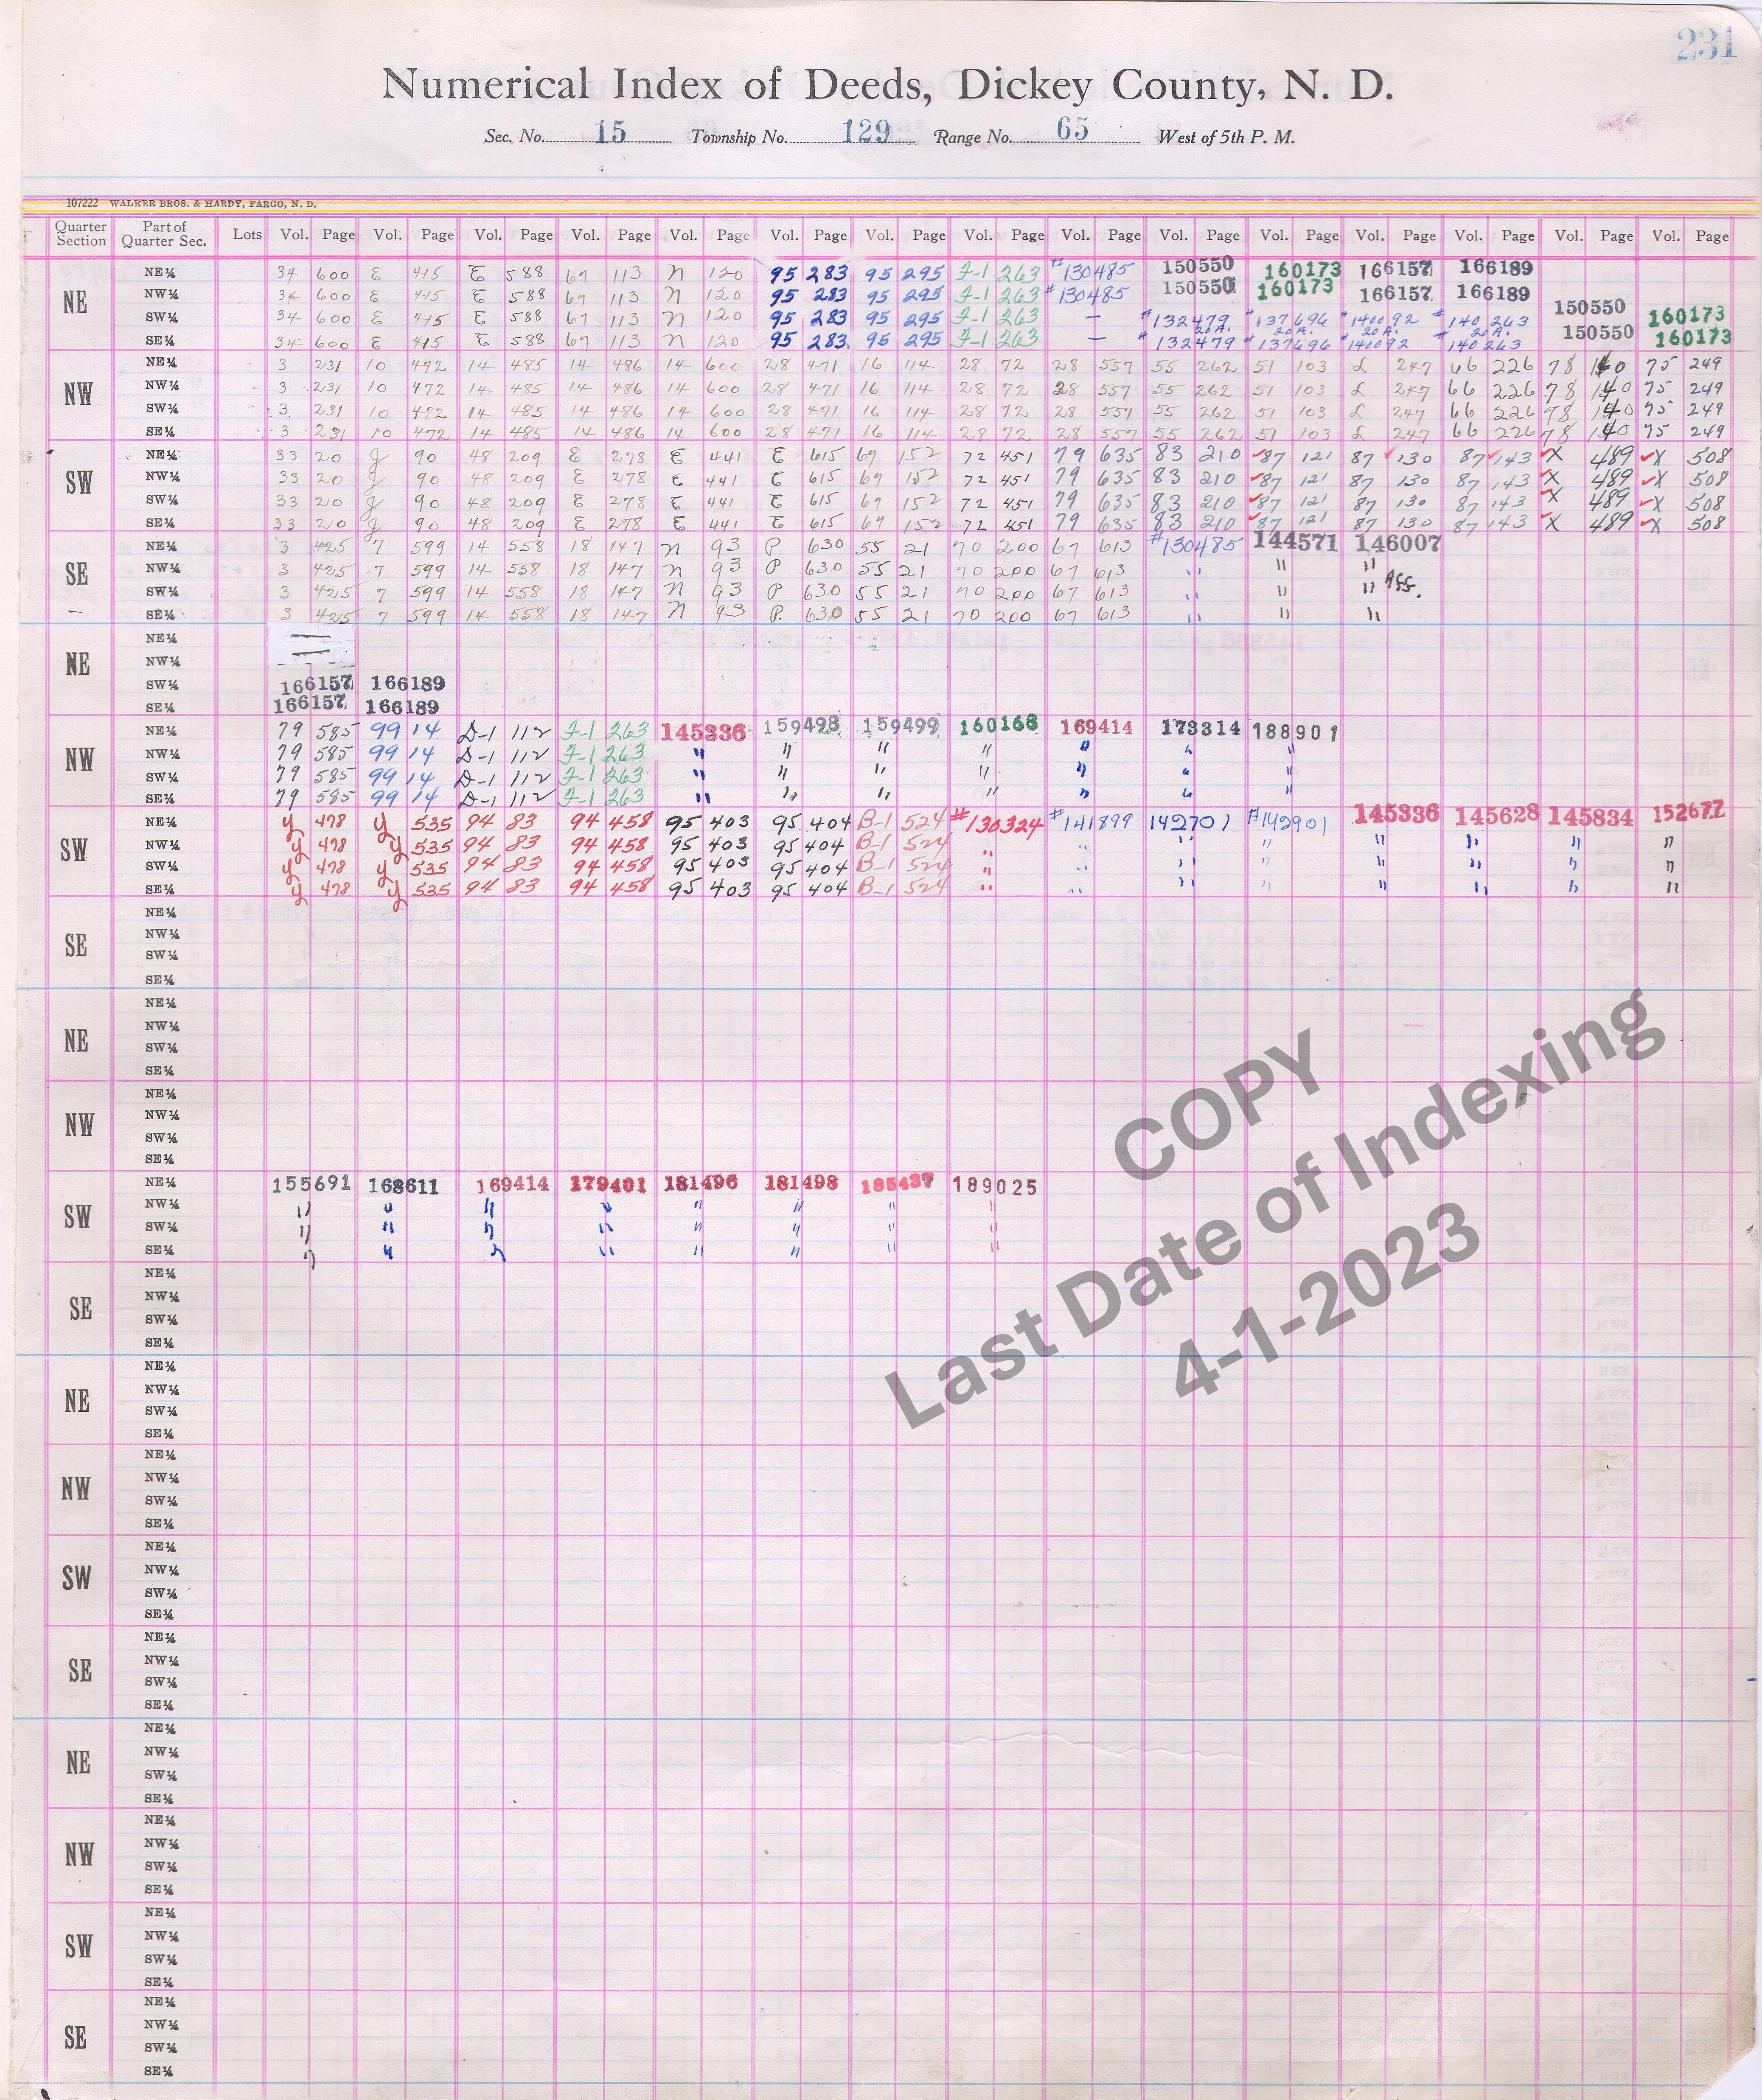 231
Numerical Index of Deeds, Dickey County, N. D.
Sec. No. 15 Township No. 129 Range No. 65 West of 5th P. M.
107222 WALKER BROS. & HARDY, FARGO, N. D.
Quarter Section Part of Quarter Sec. Lots Vol. Page Vol. Page Vol. Page Vol. Page Vol. Page Vol. Page Vol. Page Vol. Page Vol. Page Vol. Page Vol. Page Vol. Page Vol. Page Vol. Page Vol. Page
NE
NE¼ 34 600 E 415 E 588 67 113 N 120 95 283 95 295 F-1 263 #130485 150550 160173 166157 166189
NW¼ 34 600 E 415 E 588 67 113 N 120 95 283 95 295 F-1 263 #130485 150550 160173 166157 166189
SW¼ 34 600 E 415 E 588 67 113 N 120 95 283 95 295 F-1 263 — #132479 20 A. #137696 20 A. #140092 20 A. #140263 20 A. 150550 160173
SE¼ 34 600 E 415 E 588 67 113 N 120 95 283 95 295 F-1 263 — #132479 #137696 #140092 #140263 150550 160173
NW
NE¼ 3 231 10 472 14 485 14 486 14 600 28 471 16 114 28 72 28 557 55 262 51 103 L 247 66 226 78 140 75 249
NW¼ 3 231 10 472 14 485 14 486 14 600 28 471 16 114 28 72 28 557 55 262 51 103 L 247 66 226 78 140 75 249
SW¼ 3 231 10 472 14 485 14 486 14 600 28 471 16 114 28 72 28 557 55 262 51 103 L 247 66 226 78 140 75 249
SE¼ 3 231 10 472 14 485 14 486 14 600 28 471 16 114 28 72 28 557 55 262 51 103 L 247 66 226 78 140 75 249
SW
NE¼ 33 20 g 90 48 209 E 278 E 441 E 615 67 152 72 451 79 635 83 210 87 121 87 130 87 143 X 489 X 508
NW¼ 33 20 g 90 48 209 E 278 E 441 E 615 67 152 72 451 79 635 83 210 87 121 87 130 87 143 X 489 X 508
SW¼ 33 20 g 90 48 209 E 278 E 441 E 615 67 152 72 451 79 635 83 210 87 121 87 130 87 143 X 489 X 508
SE¼ 33 20 g 90 48 209 E 278 E 441 E 615 67 152 72 451 79 635 83 210 87 121 87 130 87 143 X 489 X 508
SE
NE¼ 3 425 7 599 14 558 18 147 N 93 P 630 55 21 70 200 67 613 #130485 144571 146007
NW¼ 3 425 7 599 14 558 18 147 N 93 P 630 55 21 70 200 67 613 " " "
SW¼ 3 425 7 599 14 558 18 147 N 93 P 630 55 21 70 200 67 613 " " " Ass.
SE¼ 3 425 7 599 14 558 18 147 N 93 P. 630 55 21 70 200 67 613 " " "
NE
NE¼
NW¼
SW¼ 166157 166189
SE¼ 166157 166189
NW
NE¼ 79 585 99 14 D-1 112 F-1 263 145336 159498 159499 160168 169414 173314 188901
NW¼ 79 585 99 14 D-1 112 F-1 263 " " " " " " "
SW¼ 79 585 99 14 D-1 112 F-1 263 " " " " " " "
SE¼ 79 585 99 14 D-1 112 F-1 263 " " " " " " "
SW
NE¼ y 478 y 535 94 83 94 458 95 403 95 404 B-1 524 #130324 #141899 142701 #142901 145336 145628 145834 152677
NW¼ y 478 y 535 94 83 94 458 95 403 95 404 B-1 524 " " " " " " " "
SW¼ y 478 y 535 94 83 94 458 95 403 95 404 B-1 524 " " " " " " " "
SE¼ y 478 y 535 94 83 94 458 95 403 95 404 B-1 524 " " " " " " " "
SE
NE¼
NW¼
SW¼
SE¼
NE
NE¼
NW¼
SW¼
SE¼
NW
NE¼
NW¼
SW¼
SE¼
SW
NE¼ 155691 168611 169414 179401 181496 181498 185437 189025
NW¼ " " " " " " " "
SW¼ " " " " " " " "
SE¼ " " " " " " " "
SE
NE¼
NW¼
SW¼
SE¼
NE
NE¼
NW¼
SW¼
SE¼
NW
NE¼
NW¼
SW¼
SE¼
SW
NE¼
NW¼
SW¼
SE¼
SE
NE¼
NW¼
SW¼
SE¼
NE
NE¼
NW¼
SW¼
SE¼
NW
NE¼
NW¼
SW¼
SE¼
SW
NE¼
NW¼
SW¼
SE¼
SE
NE¼
NW¼
SW¼
SE¼
COPY
Last Date of Indexing
4-1-2023